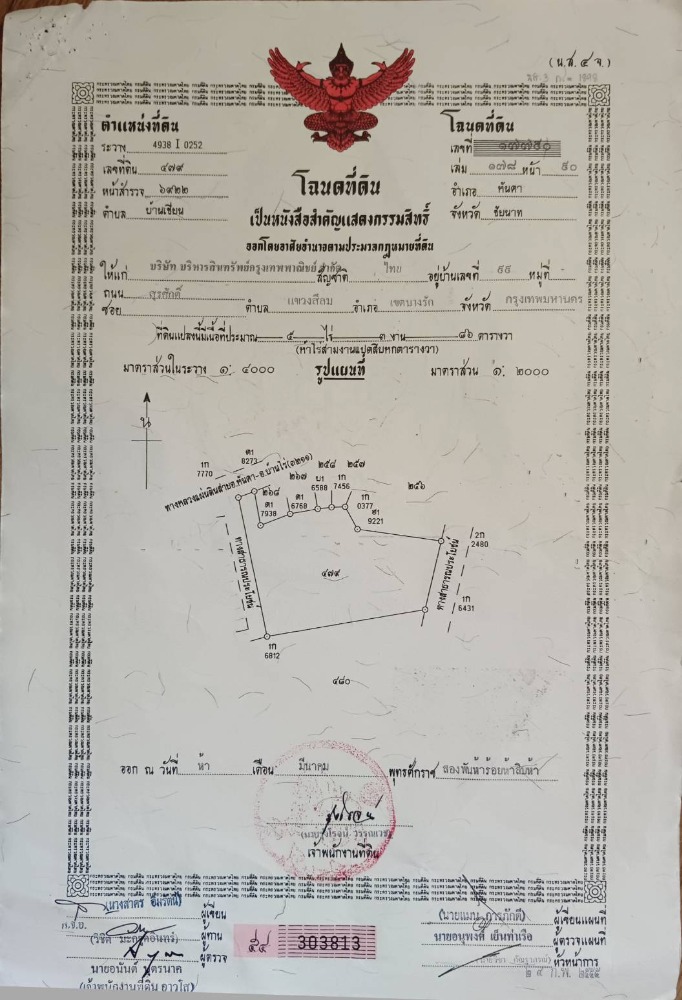 (น.ส.๔ จ.)
ตำแหน่งที่ดิน
ระวาง 4938 I 0252
เลขที่ดิน ๔๗๙
หน้าสำรวจ ๖๙๒๒
ตำบล บ้านเชี่ยน
โฉนดที่ดิน
เลขที่
เล่ม ๑๗๘ หน้า ๕๐
อำเภอ หันคา
จังหวัด ชัยนาท
โฉนดที่ดิน
เป็นหนังสือสำคัญแสดงกรรมสิทธิ์
ออกโดยอาศัยอำนาจตามประมวลกฎหมายที่ดิน
ให้แก่ บริษัท บริหารสินทรัพย์กรุงเทพพาณิชย์ จำกัด สัญชาติ ไทย อยู่บ้านเลขที่ ๙๙ หมู่ที่ -
ถนน สุรศักดิ์
ซอย ตำบล แขวงสีลม อำเภอ เขตบางรัก จังหวัด กรุงเทพมหานคร
ที่ดินแปลงนี้มีเนื้อที่ประมาณ ๕ ไร่ ๓ งาน ๘๖ ตารางวา
(ห้าไร่สามงานแปดสิบหกตารางวา)
มาตราส่วนในระวาง ๑: ๔๐๐๐ รูปแผนที่ มาตราส่วน ๑: ๒๐๐๐
น
ทางหลวงแผ่นดินสายอ.หันคา-อ.บ้านไร่(๓๒๑๑)
1ก
7770
ต1
8273
๒๖๘
๒๖๗
๒๕๘
๒๕๗
๒๕๖
ต1
7938
ต1
6768
บ1
6588
1ก
7456
1ก
0377
ฮ1
9221
2ก
2480
ทางสาธารณประโยชน์
๔๗๙
ทางสาธารณประโยชน์
1ก
6431
1ก
6812
๔๘๐
ออก ณ วันที่ ห้า เดือน มีนาคม พุทธศักราช สองพันห้าร้อยห้าสิบห้า
เจ้าพนักงานที่ดิน
ผู้เขียน
ผู้ทาน
ผู้ตรวจ
303813
ผู้เขียนแผนที่
นายอนุพงศ์ เย็นท่าเรือ ผู้ตรวจแผนที่
หัวหน้าการ
๒๔ ก.พ. ๒๕๕๕